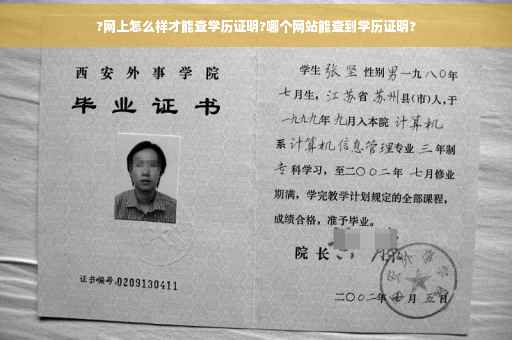 ?网上怎么样才能查学历证明?哪个网站能查到学历证明?
西安外事学院
毕业证书
证书编号:0209130411
学生 张坚 性别 男 一九八〇年
七月生，江苏省 苏州县(市)人，于
一九九九年 九月入本院 计算机
系 计算机信息管理专业 三 年制
专科学习，至二〇〇二年 七月修业
期满，学完教学计划规定的全部课程，
成绩合格，准予毕业。
院长
二〇〇二年 月 五日